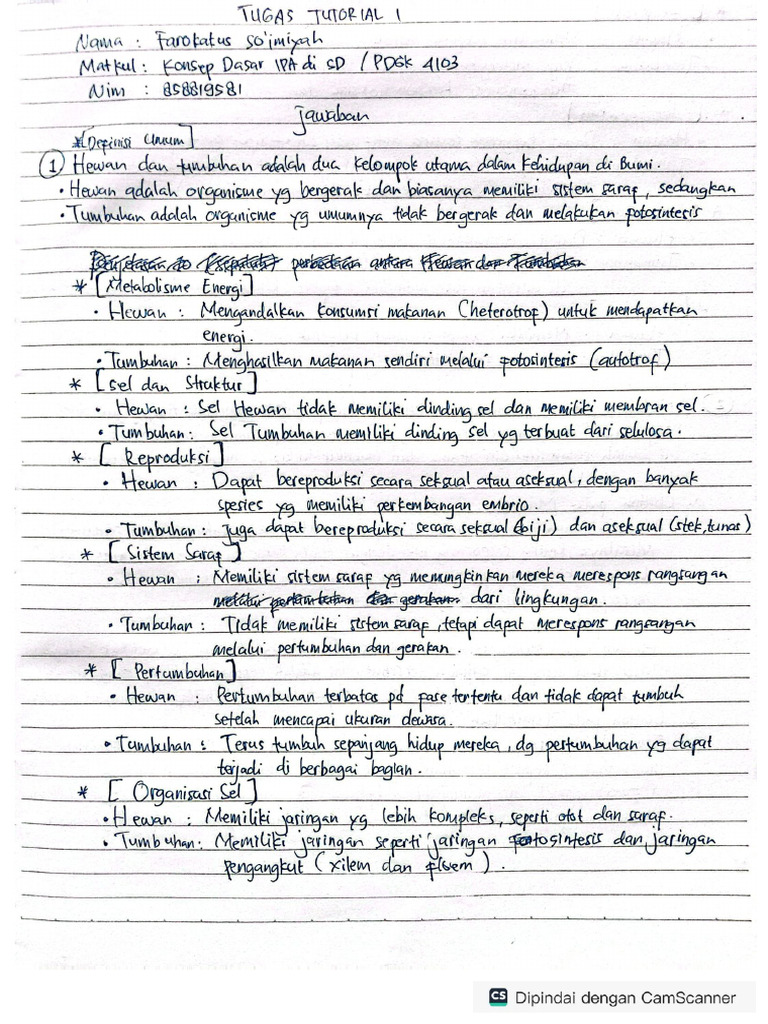 TUGAS TUTORIAL 1
Nama : Farokatus so'imiyah
Matkul : Konsep Dasar IPA di SD / PDGK 4103
Nim : 858819581
Jawaban
*[Definisi Umum]
1 Hewan dan tumbuhan adalah dua kelompok utama dalam kehidupan di Bumi.
• Hewan adalah organisme yg bergerak dan biasanya memiliki sistem saraf, sedangkan
• Tumbuhan adalah organisme yg umumnya tidak bergerak dan melakukan fotosintesis
perbedaan antara Hewan dan Tumbuhan
* [Metabolisme Energi]
• Hewan : Mengandalkan konsumsi makanan (heterotrof) untuk mendapatkan
energi.
• Tumbuhan : Menghasilkan makanan sendiri melalui fotosintesis (autotrof)
* [sel dan Struktur]
• Hewan : Sel Hewan tidak memiliki dinding sel dan memiliki membran sel.
• Tumbuhan : Sel Tumbuhan memiliki dinding sel yg terbuat dari selulosa.
* [Reproduksi]
• Hewan : Dapat bereproduksi secara seksual atau aseksual, dengan banyak
spesies yg memiliki perkembangan embrio.
• Tumbuhan : Juga dapat bereproduksi secara seksual (biji) dan aseksual (stek, tunas)
* [Sistem Saraf]
• Hewan : Memiliki sistem saraf yg memungkinkan mereka merespons rangsangan
melalui pertumbuhan dan gerakan dari lingkungan.
• Tumbuhan : Tidak memiliki sistem saraf, tetapi dapat merespons rangsangan
melalui pertumbuhan dan gerakan.
* [Pertumbuhan]
• Hewan : Pertumbuhan terbatas pd fase tertentu dan tidak dapat tumbuh
setelah mencapai ukuran dewasa.
• Tumbuhan : Terus tumbuh sepanjang hidup mereka, dg pertumbuhan yg dapat
terjadi di berbagai bagian.
* [Organisasi Sel]
• Hewan : Memiliki jaringan yg lebih kompleks, seperti otot dan saraf.
• Tumbuhan : Memiliki jaringan seperti jaringan fotosintesis dan jaringan
pengangkut (xilem dan floem).
CS Dipindai dengan CamScanner